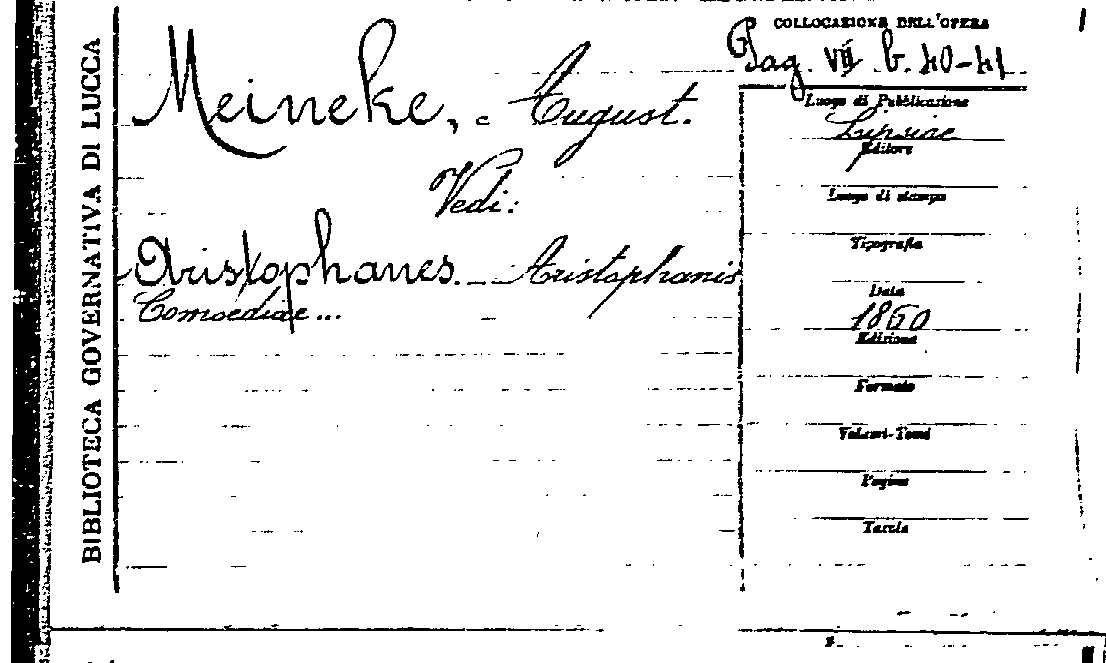 BIBLIOTECA GOVERNATIVA DI LUCCA
COLLOCAZIONE DELL'OPERA
Pag. VII b. 40-41
Meineke, August.
Vedi:
Aristophanes. _ Aristophanis
Comoediae ...
Luogo di Pubblicazione
Lipsiae
Editore
Luogo di stampa
Tipografia
Data
1860
Edizione
Formato
Volumi-Tomi
Pagine
Tavole